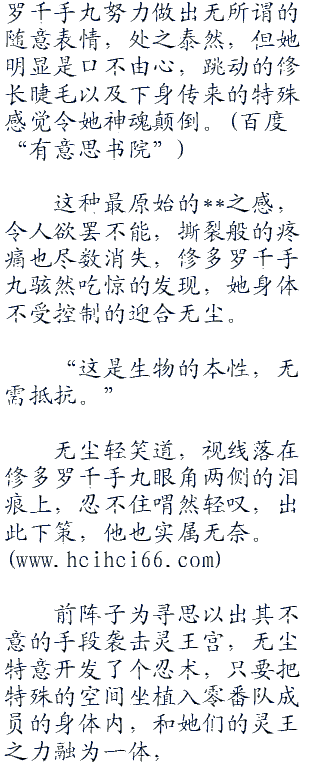 罗千手丸努力做出无所谓的
随意表情，处之泰然，但她
明显是口不由心，跳动的修
长睫毛以及下身传来的特殊
感觉令她神魂颠倒。(百度
“有意思书院”)
这种最原始的**之感，
令人欲罢不能，撕裂般的疼
痛也尽数消失，修多罗千手
丸骇然吃惊的发现，她身体
不受控制的迎合无尘。
“这是生物的本性，无
需抵抗。”
无尘轻笑道，视线落在
修多罗千手丸眼角两侧的泪
痕上，忍不住喟然轻叹，出
此下策，他也实属无奈。
(www.hcihci66.com)
前阵子为寻思以出其不
意的手段袭击灵王宫，无尘
特意开发了个忍术，只要把
特殊的空间坐植入零番队成
员的身体内，和她们的灵王
之力融为一体，